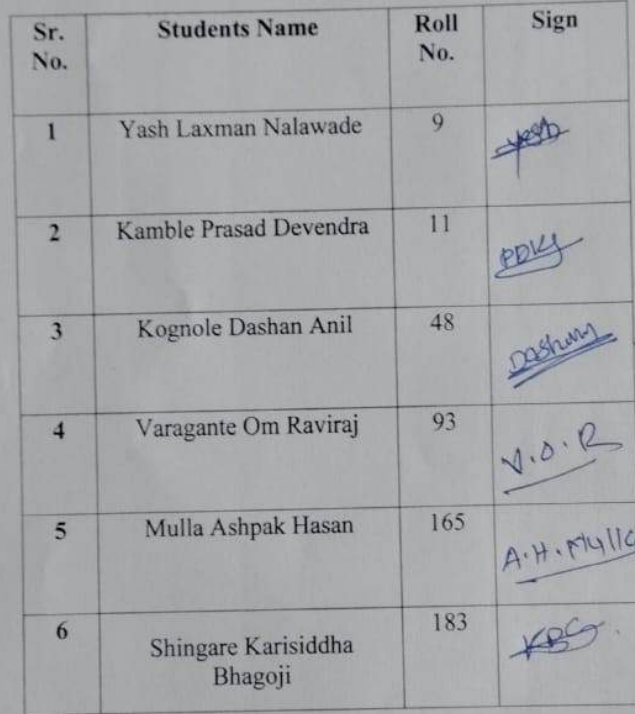 Sr. No. Students Name Roll No. Sign
1 Yash Laxman Nalawade 9 yash
2 Kamble Prasad Devendra 11
3 Kognole Dashan Anil 48
4 Varagante Om Raviraj 93 V.O.R
5 Mulla Ashpak Hasan 165 A.H.Mulla
6 Shingare Karisiddha Bhagoji 183